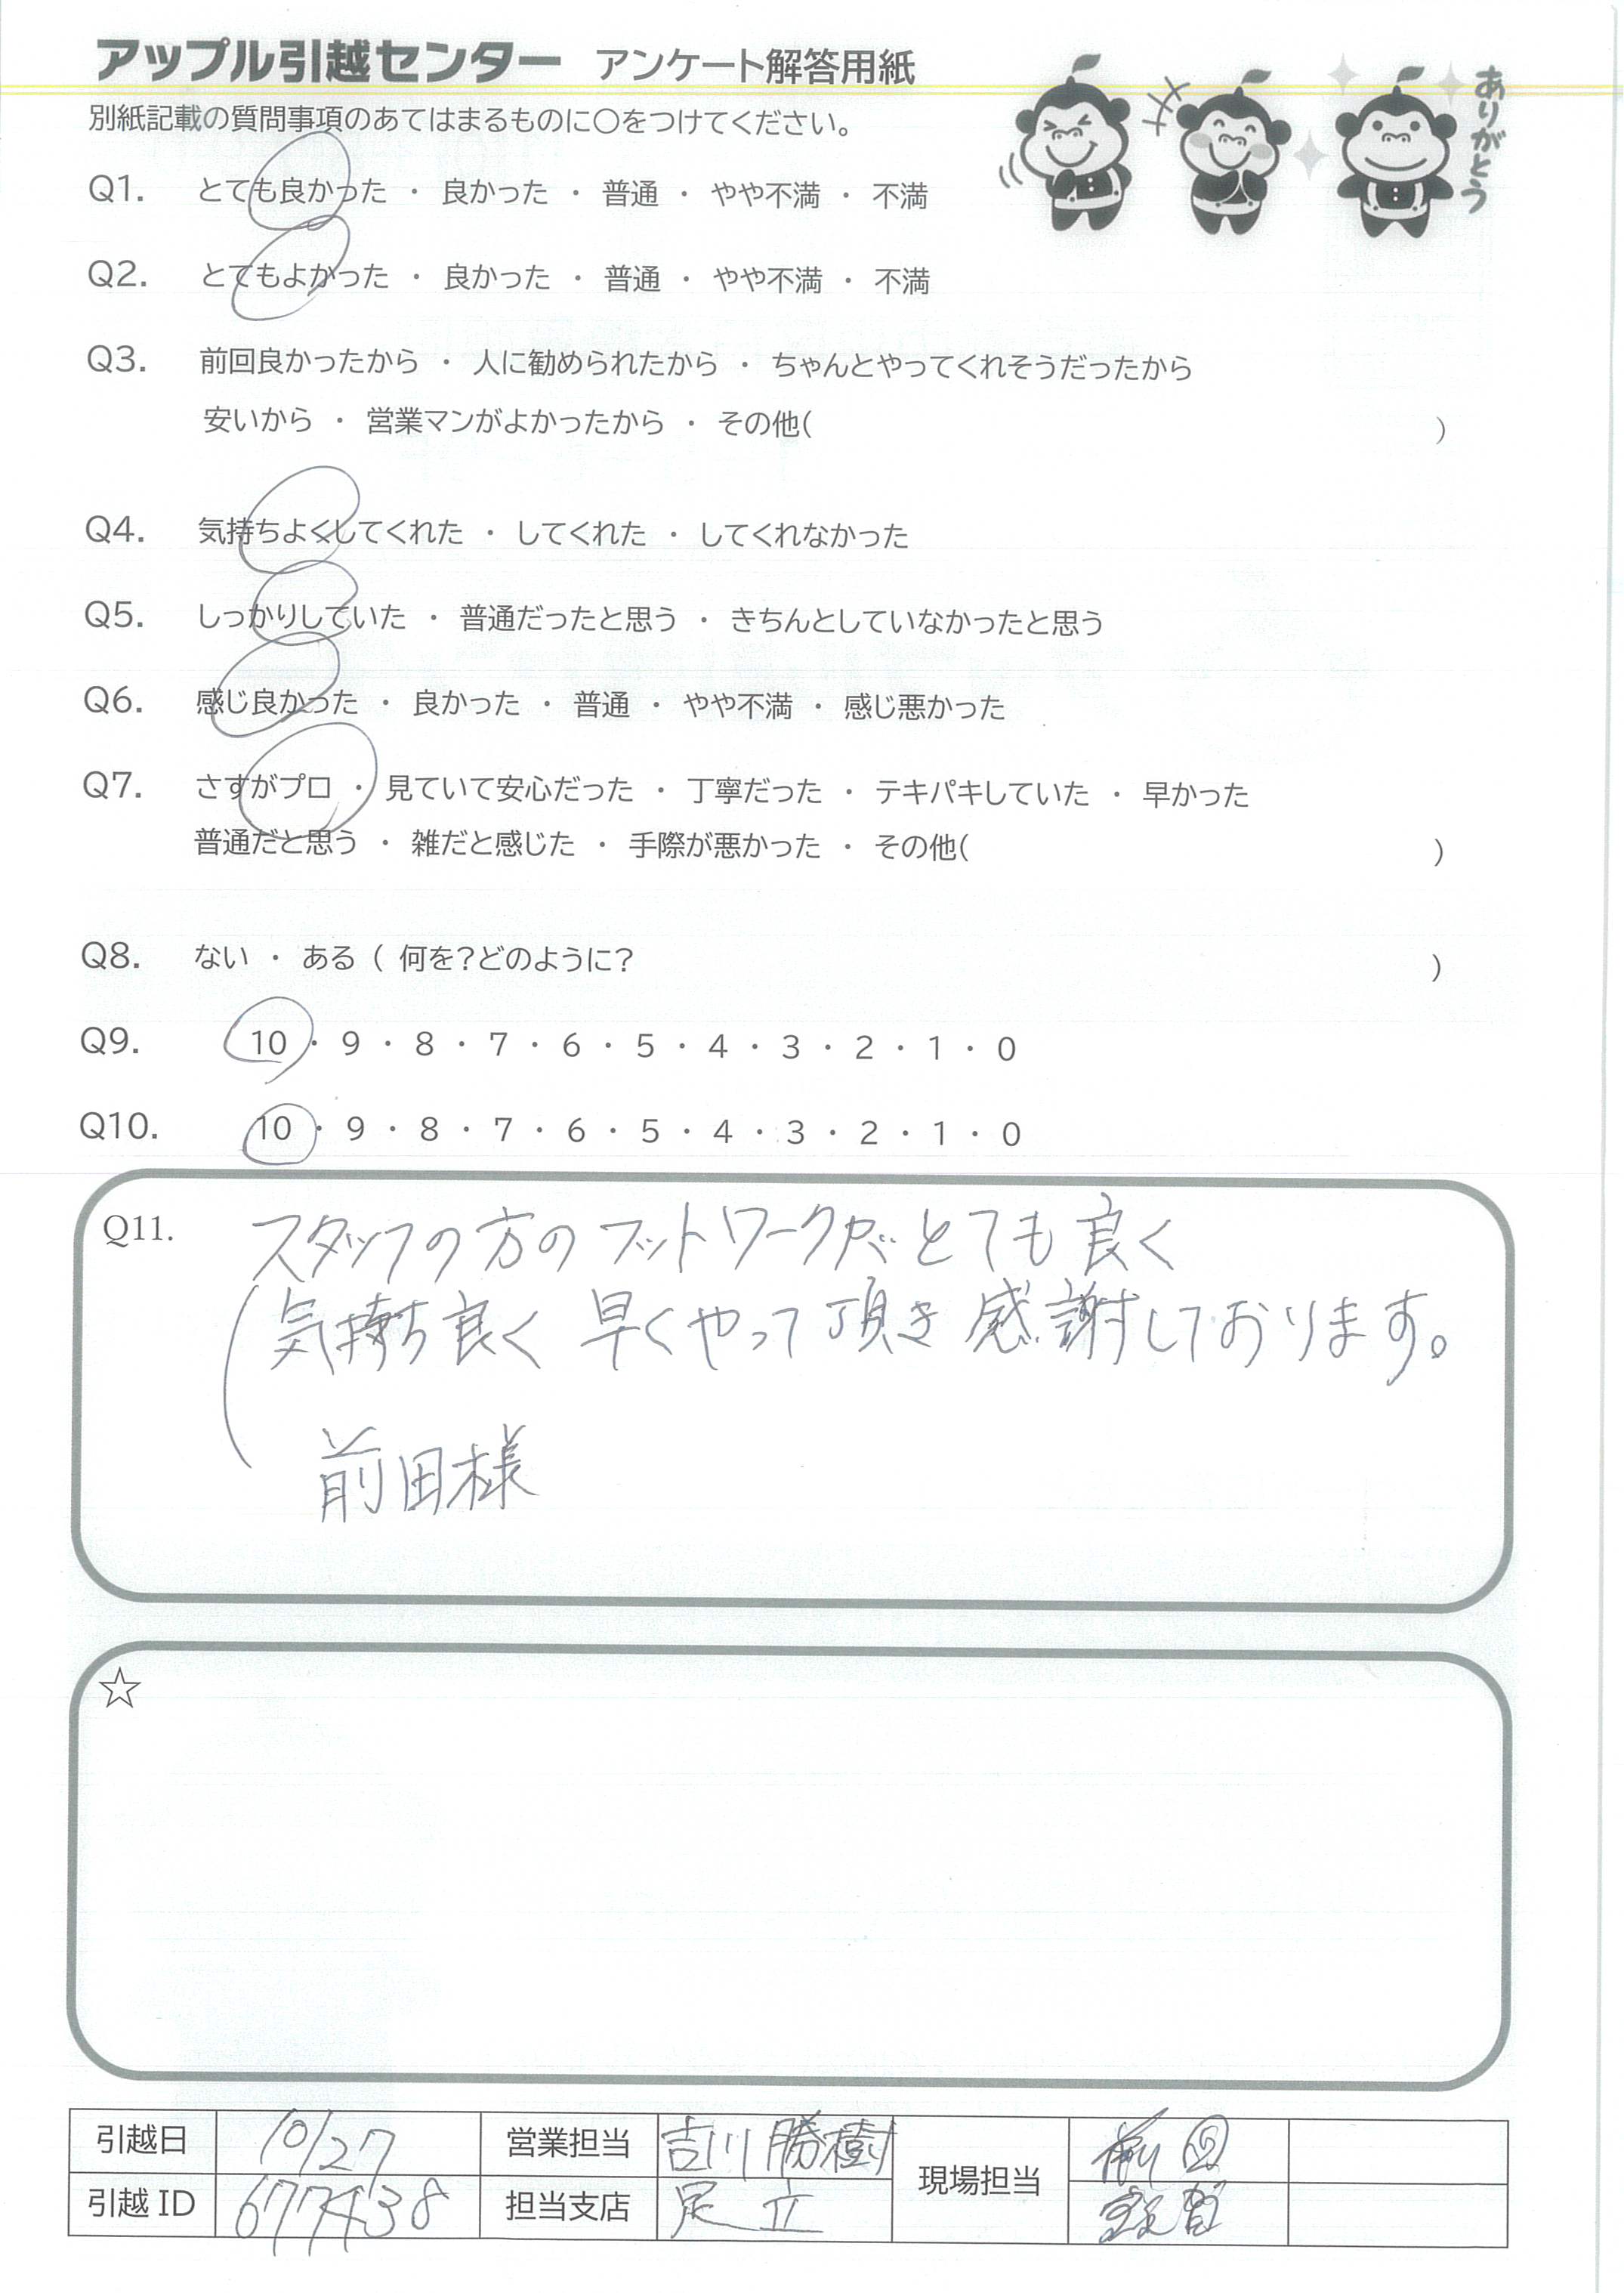 アップル引越センター アンケート解答用紙
ありがとう
別紙記載の質問事項のあてはまるものに〇をつけてください。
Q1. とても良かった ・ 良かった ・ 普通 ・ やや不満 ・ 不満
Q2. とてもよかった ・ 良かった ・ 普通 ・ やや不満 ・ 不満
Q3. 前回良かったから ・ 人に勧められたから ・ ちゃんとやってくれそうだったから
安いから ・ 営業マンがよかったから ・ その他( )
Q4. 気持ちよくしてくれた ・ してくれた ・ してくれなかった
Q5. しっかりしていた ・ 普通だったと思う ・ きちんとしていなかったと思う
Q6. 感じ良かった ・ 良かった ・ 普通 ・ やや不満 ・ 感じ悪かった
Q7. さすがプロ ・ 見ていて安心だった ・ 丁寧だった ・ テキパキしていた ・ 早かった
普通だと思う ・ 雑だと感じた ・ 手際が悪かった ・ その他( )
Q8. ない ・ ある ( 何を?どのように? )
Q9. 10 ・ 9 ・ 8 ・ 7 ・ 6 ・ 5 ・ 4 ・ 3 ・ 2 ・ 1 ・ 0
Q10. 10 ・ 9 ・ 8 ・ 7 ・ 6 ・ 5 ・ 4 ・ 3 ・ 2 ・ 1 ・ 0
Q11. スタッフの方のフットワークがとても良く
気持ち良く 早くやって頂き 感謝しております。
前田様
☆
引越日 10/27 営業担当 吉川 勝樹 現場担当
引越 ID 677438 担当支店 足立